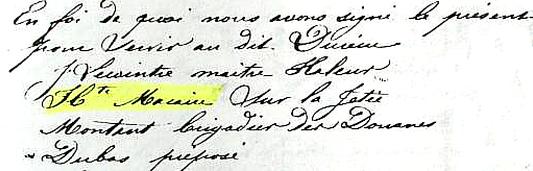 En foi de quoi nous avons signé le présent
pour servir au dit. Divin
J Lecointre maître Haleur
Hte Macaire sur la Jetée
Montant brigadier des Douanes
Dubos préposé